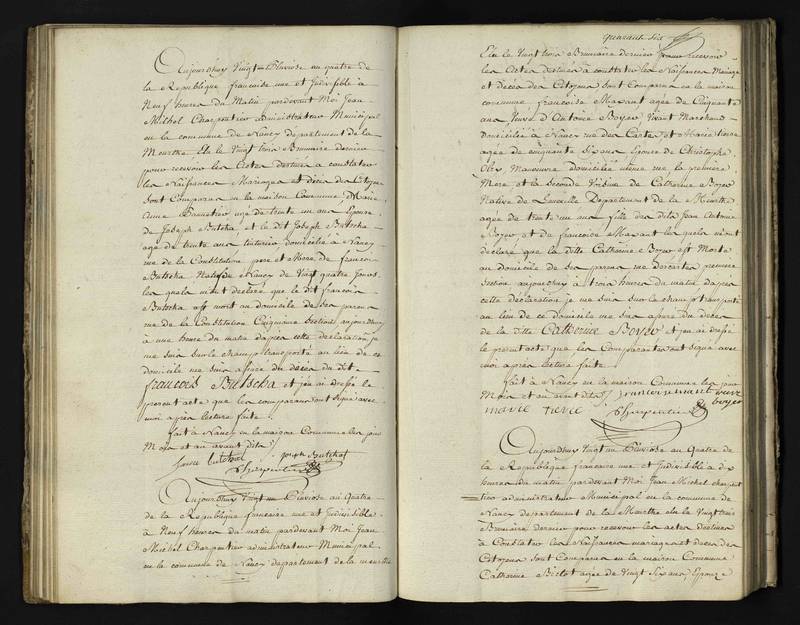 Aujourdhuy Vingt un Pluviose au quatre de
la Republique francoise une et Indivisible à
Neuf heures du Matin pardevant Moi Jean
Michel Charpentier administrateur Municipal
en la commune de Nancy département de la
Meurthe, Elu le Vingt trois Brumaire dernier
pour recevoir les Actes destinés a constater
les Naissances Mariages et décès des Citoyens
sont Comparus en la maison Commune, Marie
Anne agée de trente un ans Epouse
de Joseph Butscha, et le dit Joseph Butscha
agé de trente ans domicilié à Nancy
rue de la Constitution pere et Mere de francois
Butscha Natif de Nancy de Vingt quatre Jours
les quels m'ont declaré que le dit francois
Butscha est mort au domicile de ses parens
rue de la Constitution Cinquieme Section, aujourdhuy
à une heure du matin dapres cette déclaration, je
me suis sur le champ transporté au lieu de ce
domicile me suis assuré du décès du dit
françois Butscha et j'en ai dressé le
present acte que les comparans ont signé avec
moi après lecture faite.
fait à Nancy en la maison Commune les jour
Mois et an avant dits
Joseph Butschaf
Charpentier
Aujourdhuy Vingt un Pluviose au Quatre
de la Republique francoise une et Indivisible
à Neuf heures du matin pardevant Moi Jean
Michel Charpentier administrateur Municipal
en la commune de Nancy departement de la meurthe
quarante six
Elu le Vingt trois Brumaire dernier pour recevoir
les Actes destinés à constater les Naissances Mariages
et décès des Citoyens sont Comparus en la maison
commune, francoise Mayant agée de Cinquante
ans Veuve d'Antoine Boyer Vivant Marchand
domiciliée à Nancy rue des Cartes et Marie
agée de cinquante six ans Epouse de Christophe
Manoeuvre domiciliée même rue la premiere
Mere et la seconde Voisine de Catherine Boyer
Native de Luneville Departement de la Meurthe
agée de trente un ans fille des dits Jean Antoine
Boyer et de francoise Mayant les quels m'ont
declaré que la ditte Catherine Boyer est Morte
au domicile de ses parens rue Descartes premiere
Section aujourdhuy à trois heures du matin dapres
cette déclaration je me suis sur le champ transporté
au lieu de ce domicile me suis assuré du décès
de la ditte Catherine Boyer et j'en ai dressé
le present acte que les Comparantes ont signé avec
moi après lecture faite
fait à Nancy en la maison Commune les jour
Mois et an avant dits
veuve
boyer
marie
Charpentier
Aujourdhuy Vingt un Pluviose au Quatre de
la Republique francoise une et Indivisible à dix
heures du matin pardevant Moi Jean Michel Charpen
tier administrateur Municipal en la commune de
Nancy departement de la Meurthe elu le Vingt trois
Brumaire dernier pour recevoir les actes destinés
à Constater les Naissances mariages et deces des
Citoyens sont Comparus en la maison Commune
Catherine agée de Vingt Six ans, Epouse